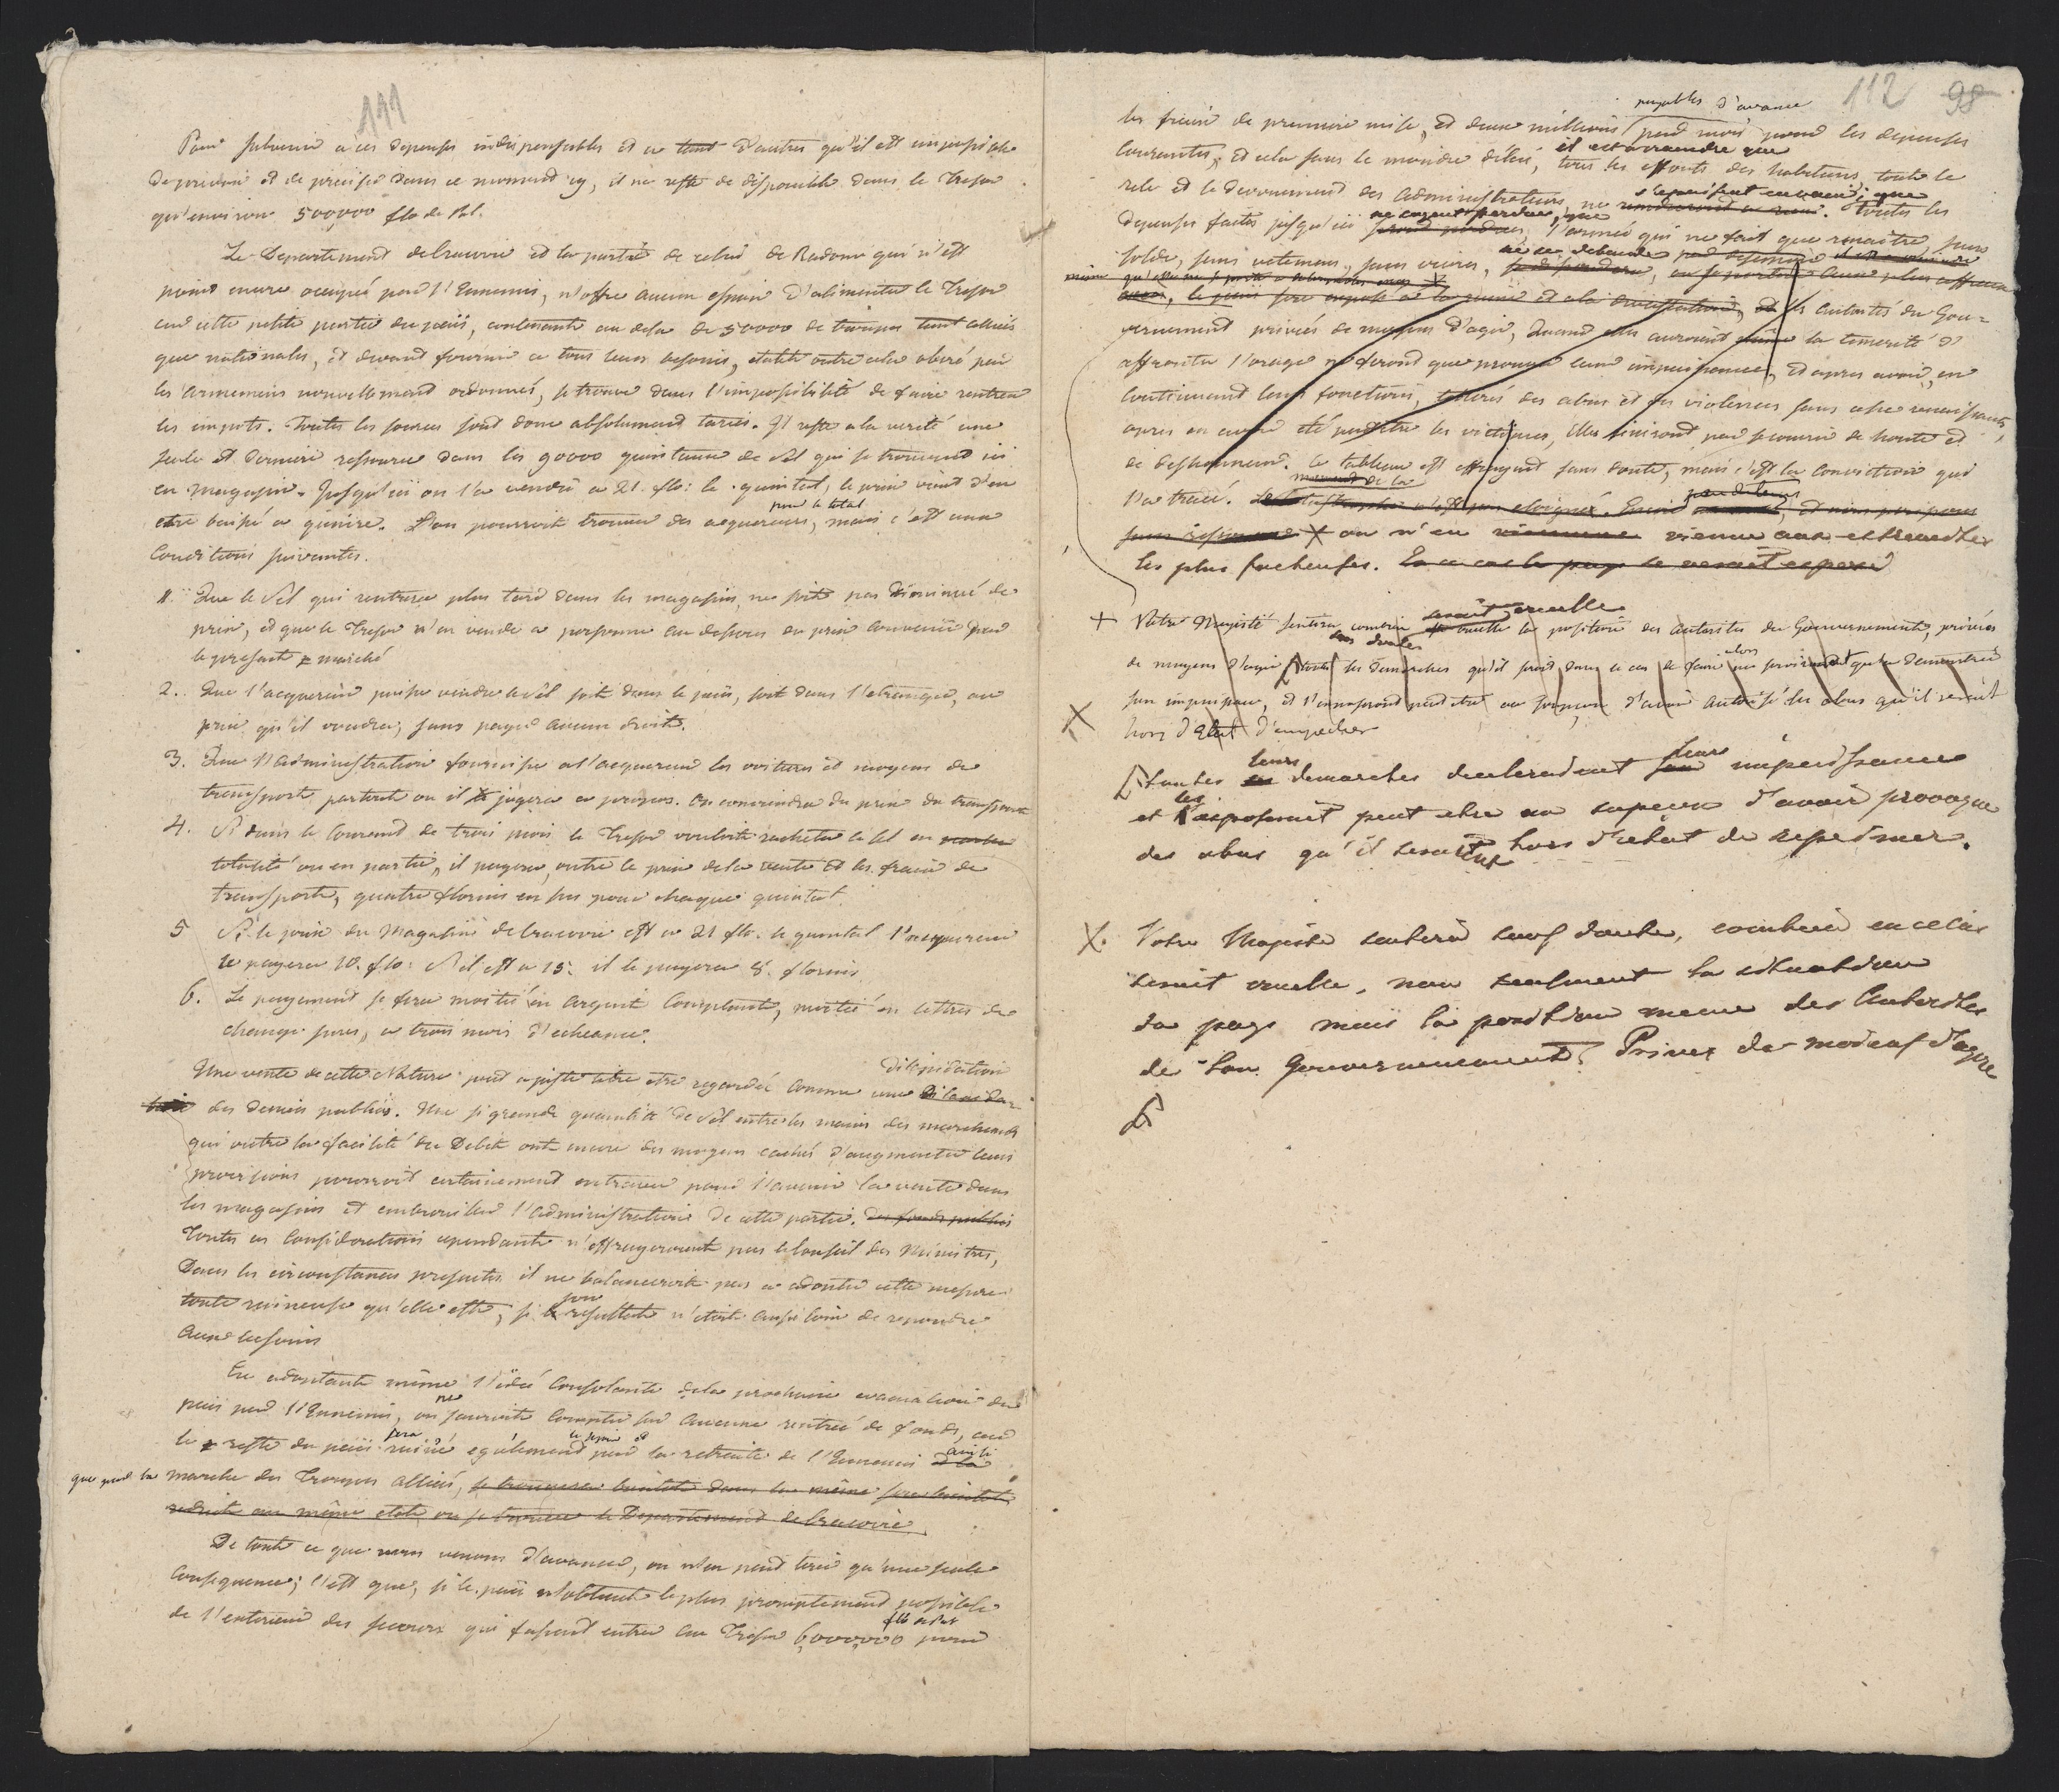 111
Pour subvenir a ces depenses indispensables et a tant d'autres qu'il est impossible
de prevoir et de preciser dans ce moment cy, il ne reste de disponible dans le Tresor
qu'environ 500,000 flo de Pol.
Le Departement de Cracovie et la partie de celui de Radom qui n'est
point encore occupée par l'Ennemi, n'offre aucun espoir d'alimenter le Tresor
car cette petite partie du païs, contenante au dela de 50000 de troupes tant alliées
que nationales, et devant fournir a tous leurs besoins, etante outre cela oberé par
les armemens nouvellement ordonnés, se trouve dans l'impossibilité de faire rentrer
les impots. Toutes les sources sont donc absolument taries. Il reste a la verité une
seule et derniere ressource dans les 90000 quintaux de Sel qui se trouvent ici
en magasin. Jusqu'ici on l'a vendu a 21. flo: le quintal, le prix vient d'en
etre baissé a quinze. L'on pourroit trouver des acquereurs, mais c'est aux
pour le total
Conditions suivantes.
1. Que le Sel qui rentrera plus tard dans les magasins, ne soit pas diminué de
prix, et que le Tresor n'en vende a personne au dessous du prix convenu par
le present marché
2. Que l'acquereur puisse vendre le sel soit dans le païs, soit dans l'etranger, au
prix qu'il voudra, sans payer aucun droit.
3. Que l'administration fournisse a l'acquereur les voitures et moyens de
transports partout ou il le jugera a propos. On conviendra du prix du transport
4. Si dans le Courant de trois mois le Tresor vouloit racheter le sel en
totalité ou en partie, il payera, outre le prix de la vente et les fraix de
transports, quatre florins en sus pour chaque quintal.
5 Si le prix du Magasin de Cracovie est a 21 flo. le quintal l'acquereur
le payera 10. flo: S'il est a 15. il le payera 8. florins
6. Le payement se fera moitié en argent comptant, moitié en lettres de
change sures, a trois mois d'echeance.
Une vente de cette Nature peut a juste titre etre regardée comme une dilapidation
des deniers publics. Une si grande quantité de Sel entre les mains des marchands
qui outre la facilité du Debit ont encore des moyens cachés d'augmenter leurs
provisions pourroit certainement entraver pour l'avenir la vente dans
les magasins et embrouiller l'administration de cette partie. des fonds publics
Toutes ces Considerations cependant n'effrayeroient pas le Conseil des Ministres,
Dans les circonstances presentes il ne balanceroit pas a adopter cette mesure
toute ruineuse qu'elle est, si son resultat n'etoit aussi loin de repondre
aux besoins
En adoptant même l'idée consolante de la prochaine evacuation du
païs par l'Ennemi, on ne sauroit compter sur aucune rentrée de fonds, car
le reste du païs sera ruiné egalement par le sejour et la retraite de l'Ennemi ainsi
que par la marche des Troupes alliées, se trouvera bientôt dans la même sera bientôt
reduit au même etat ou se trouve le Departement de Cracovie.
De tout ce que nous venons d'avancer, on n'en peut tirer qu'une seule
consequence; c'est que, si le païs n'obtient le plus promptement possible
de l'exterieur des secours qui fassent entrer au Tresor 6,000,000 flo de Pol pour
112 98
les fraix de premiere mise, et deux millions par mois pour les depenses
payables d'avance
courantes, et cela sans le moindre délai, il est a craindre que tous les efforts des habitans toute le
zele et le devouement des administrateurs, ne s'epuisent envain; que toutes les
depenses faites jusqu'ici ne soyent perdues, que l'armée qui ne fait que renaitre, sans
solde, sans vetemens, sans vivres, ne se debande
les Autorités du Gou-
vernement privées de moyens d'agir, Quand elles auroient même la temerité d'
affronter l'orage ne feront que prouver leur impuissance, et apres avoir, en
continuant leurs fonctions, toleré des abus et des violences sans cesse renaissants,
apres en avoir été peutêtre les victimes, Elles finiront par se couvrir de honte et
de deshonneur. Ce tableau est effrayant sans doute, mais c'est la conviction qui
l'a tracé.
on n'en vienne aux extremités
les plus facheuses. En ce cas le pays se verroit exposé
+ Votre Majesté sentira combien seroit cruelle la position des autorités du Gouvernement, privées
de moyens d'agir toutes les demarches qu'il feroit dans ce cas
son impuissance, et l'exposeroit peut etre au soupçon d'avoir autorisé des abus qu'il seroit
hors d'Etat d'empecher
toutes leurs demarches deceleroient leur impuissance
et les exposeroit peut etre au soupçon d'avoir provoqué
des abus qu'il seroit hors d'etat de reprimer.
X. Votre Majesté sentira sans doute, combien en ce cas
seroit cruelle, non seulement la situation
du pays mais la position meme des Autorités
de Son Gouvernement. Privés de moiens d'agir